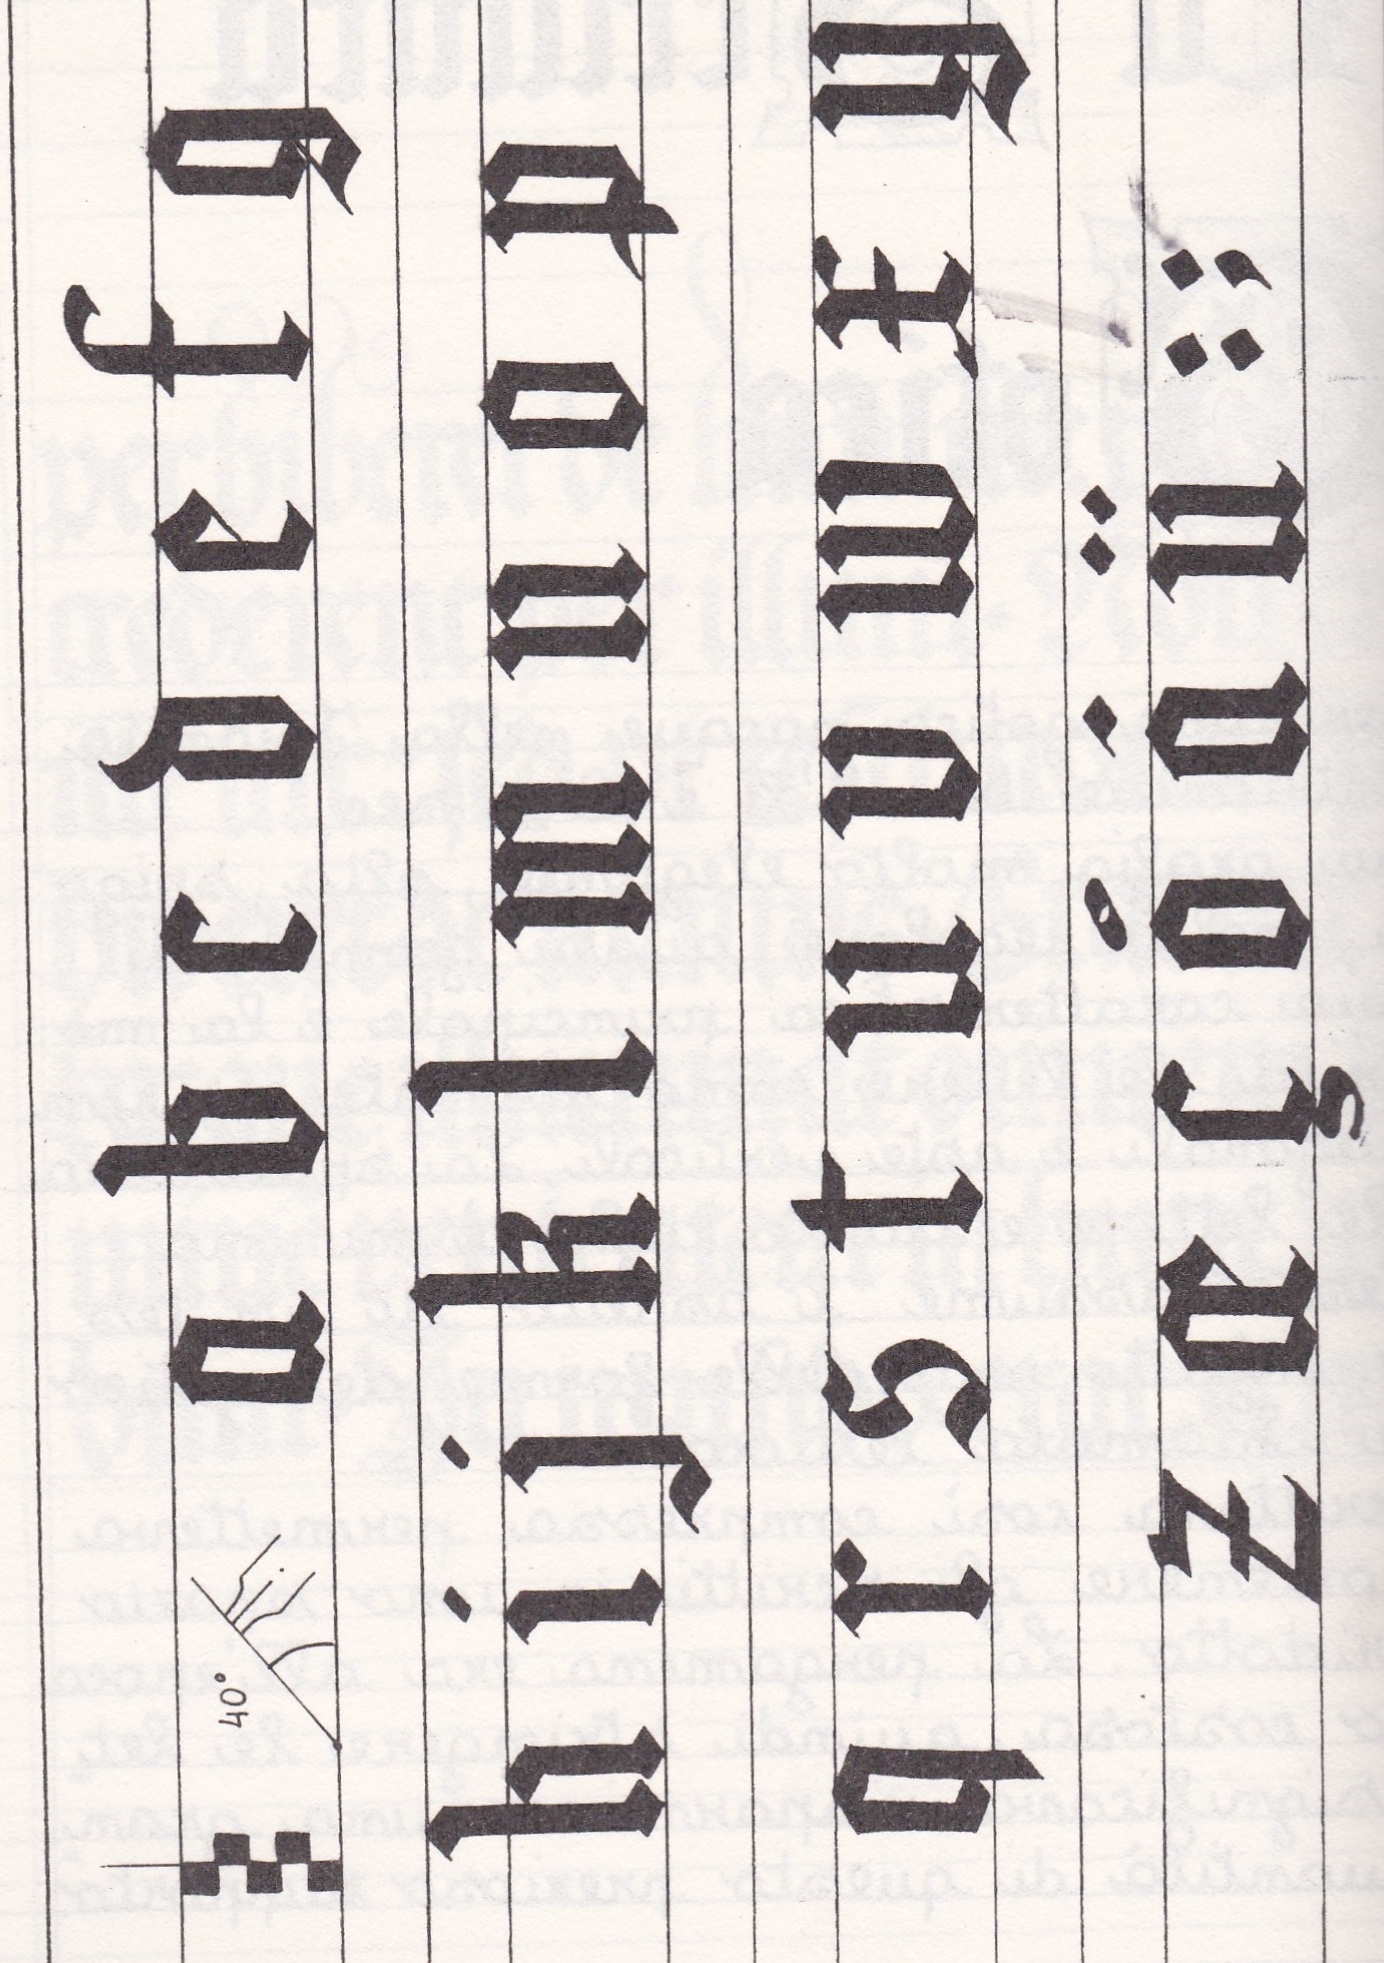 40° a b c d e f g
h i j k l m n o p
q r s t u v w x y
z æ ç ó á ü : ;